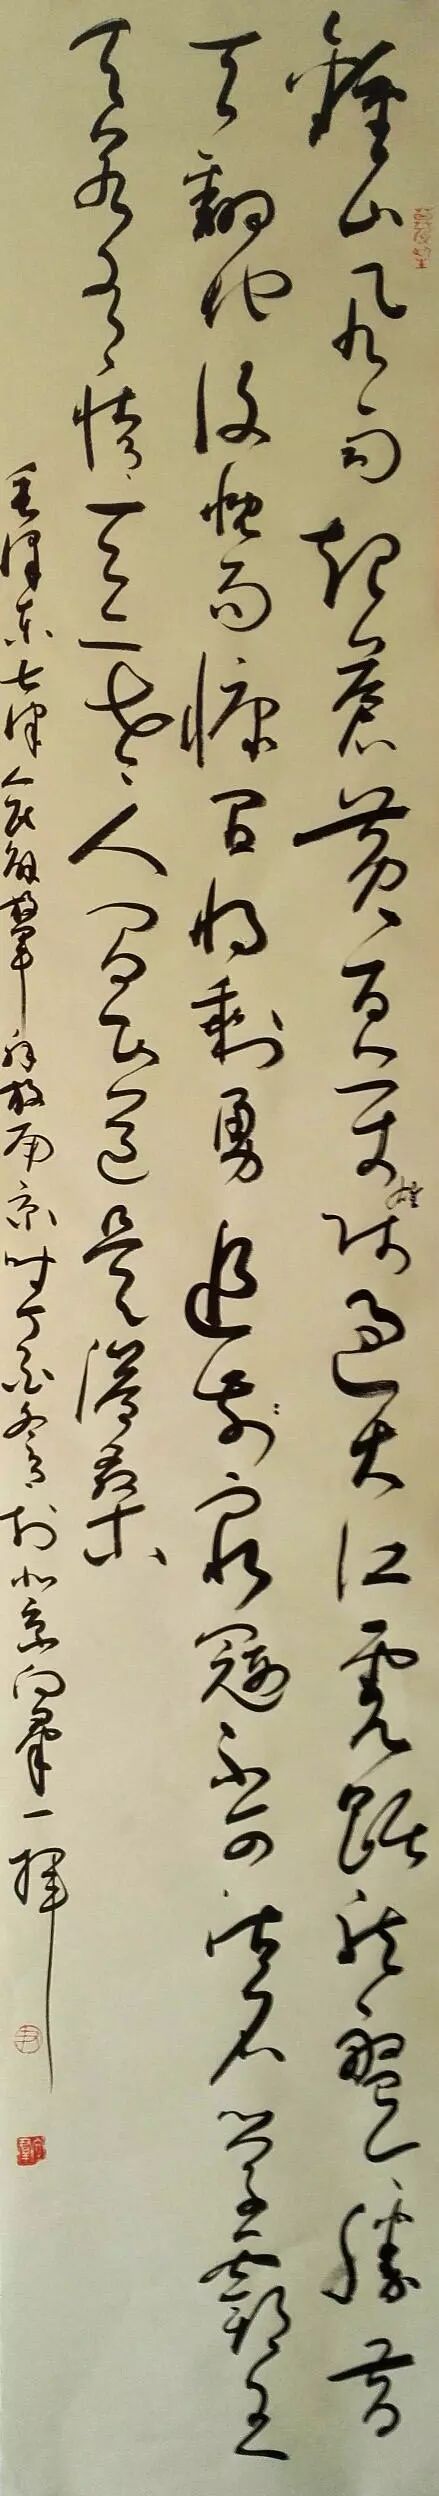 鍾山风雨起蒼黄百万雄师过大江虎踞龙盤今勝昔
天翻地覆慨而慷宜将剩勇追穷寇不可沽名学霸王
天若有情天亦老人间正道是滄桑
毛泽东七律人民解放军解放南京时丁酉冬于北京向群一挥